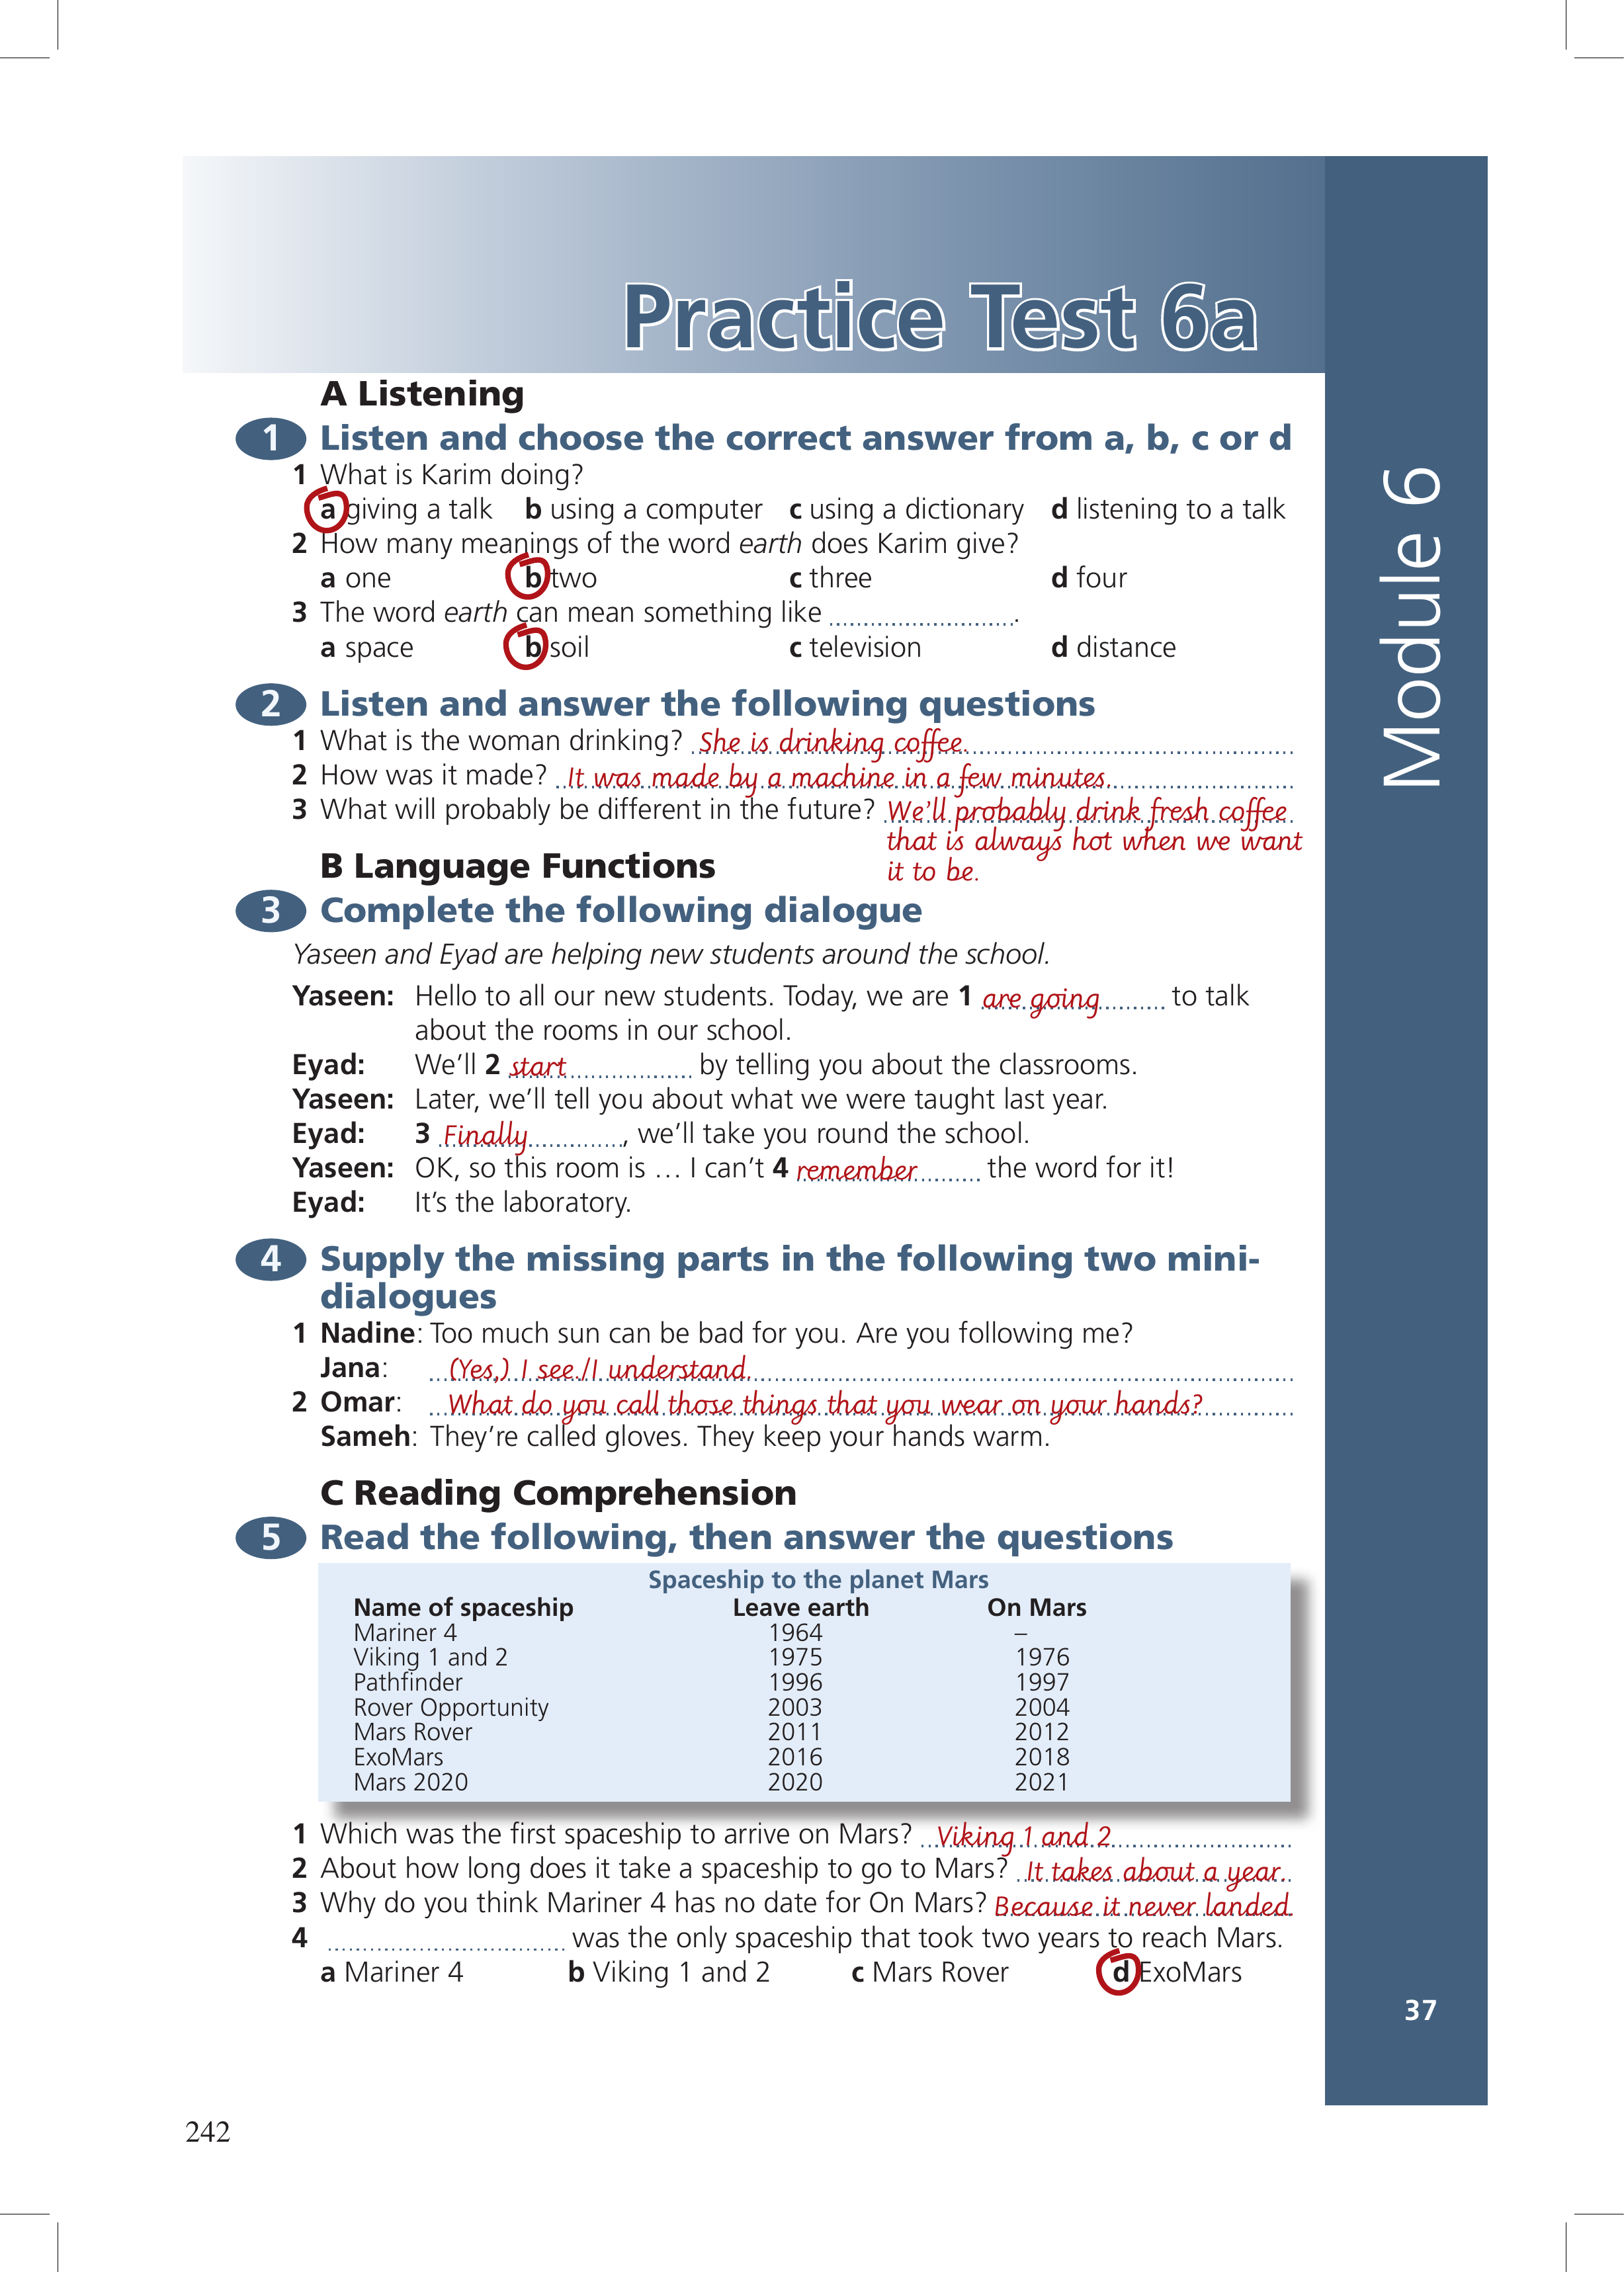 Practice Test 6a
Module 6
A Listening
1 Listen and choose the correct answer from a, b, c or d
1 What is Karim doing?
a giving a talk b using a computer c using a dictionary d listening to a talk
2 How many meanings of the word earth does Karim give?
a one b two c three d four
3 The word earth can mean something like ............................
a space b soil c television d distance
2 Listen and answer the following questions
1 What is the woman drinking? She is drinking coffee.
2 How was it made? It was made by a machine in a few minutes.
3 What will probably be different in the future? We'll probably drink fresh coffee
that is always hot when we want
it to be.
B Language Functions
3 Complete the following dialogue
Yaseen and Eyad are helping new students around the school.
Yaseen: Hello to all our new students. Today, we are 1 are going to talk
about the rooms in our school.
Eyad: We'll 2 start by telling you about the classrooms.
Yaseen: Later, we'll tell you about what we were taught last year.
Eyad: 3 Finally, we'll take you round the school.
Yaseen: OK, so this room is … I can't 4 remember the word for it!
Eyad: It's the laboratory.
4 Supply the missing parts in the following two mini-
dialogues
1 Nadine: Too much sun can be bad for you. Are you following me?
Jana: (Yes,) I see./I understand.
2 Omar: What do you call those things that you wear on your hands?
Sameh: They're called gloves. They keep your hands warm.
C Reading Comprehension
5 Read the following, then answer the questions
Spaceship to the planet Mars
Name of spaceship Leave earth On Mars
Mariner 4 1964 –
Viking 1 and 2 1975 1976
Pathfinder 1996 1997
Rover Opportunity 2003 2004
Mars Rover 2011 2012
ExoMars 2016 2018
Mars 2020 2020 2021
1 Which was the first spaceship to arrive on Mars? Viking 1 and 2
2 About how long does it take a spaceship to go to Mars? It takes about a year.
3 Why do you think Mariner 4 has no date for On Mars? Because it never landed.
4 .................................. was the only spaceship that took two years to reach Mars.
a Mariner 4 b Viking 1 and 2 c Mars Rover d ExoMars
37
242